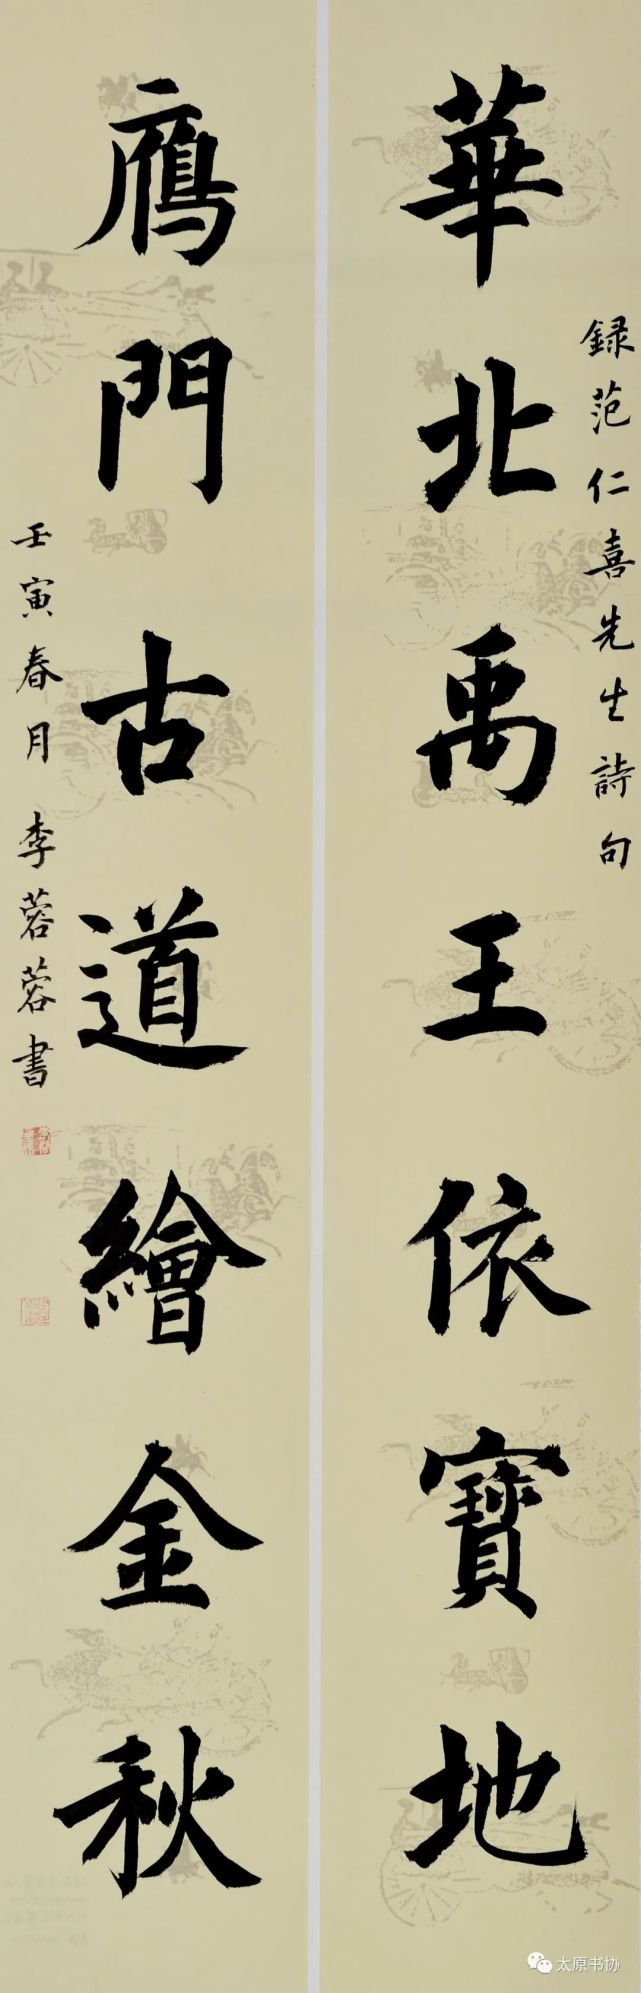 華北禹王依寶地
録范仁喜先生詩句
鴈門古道繪金秋
壬寅春月李蓉蓉書
太原书协